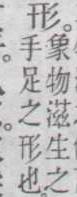 形。
象物滋生之
手足之形也。